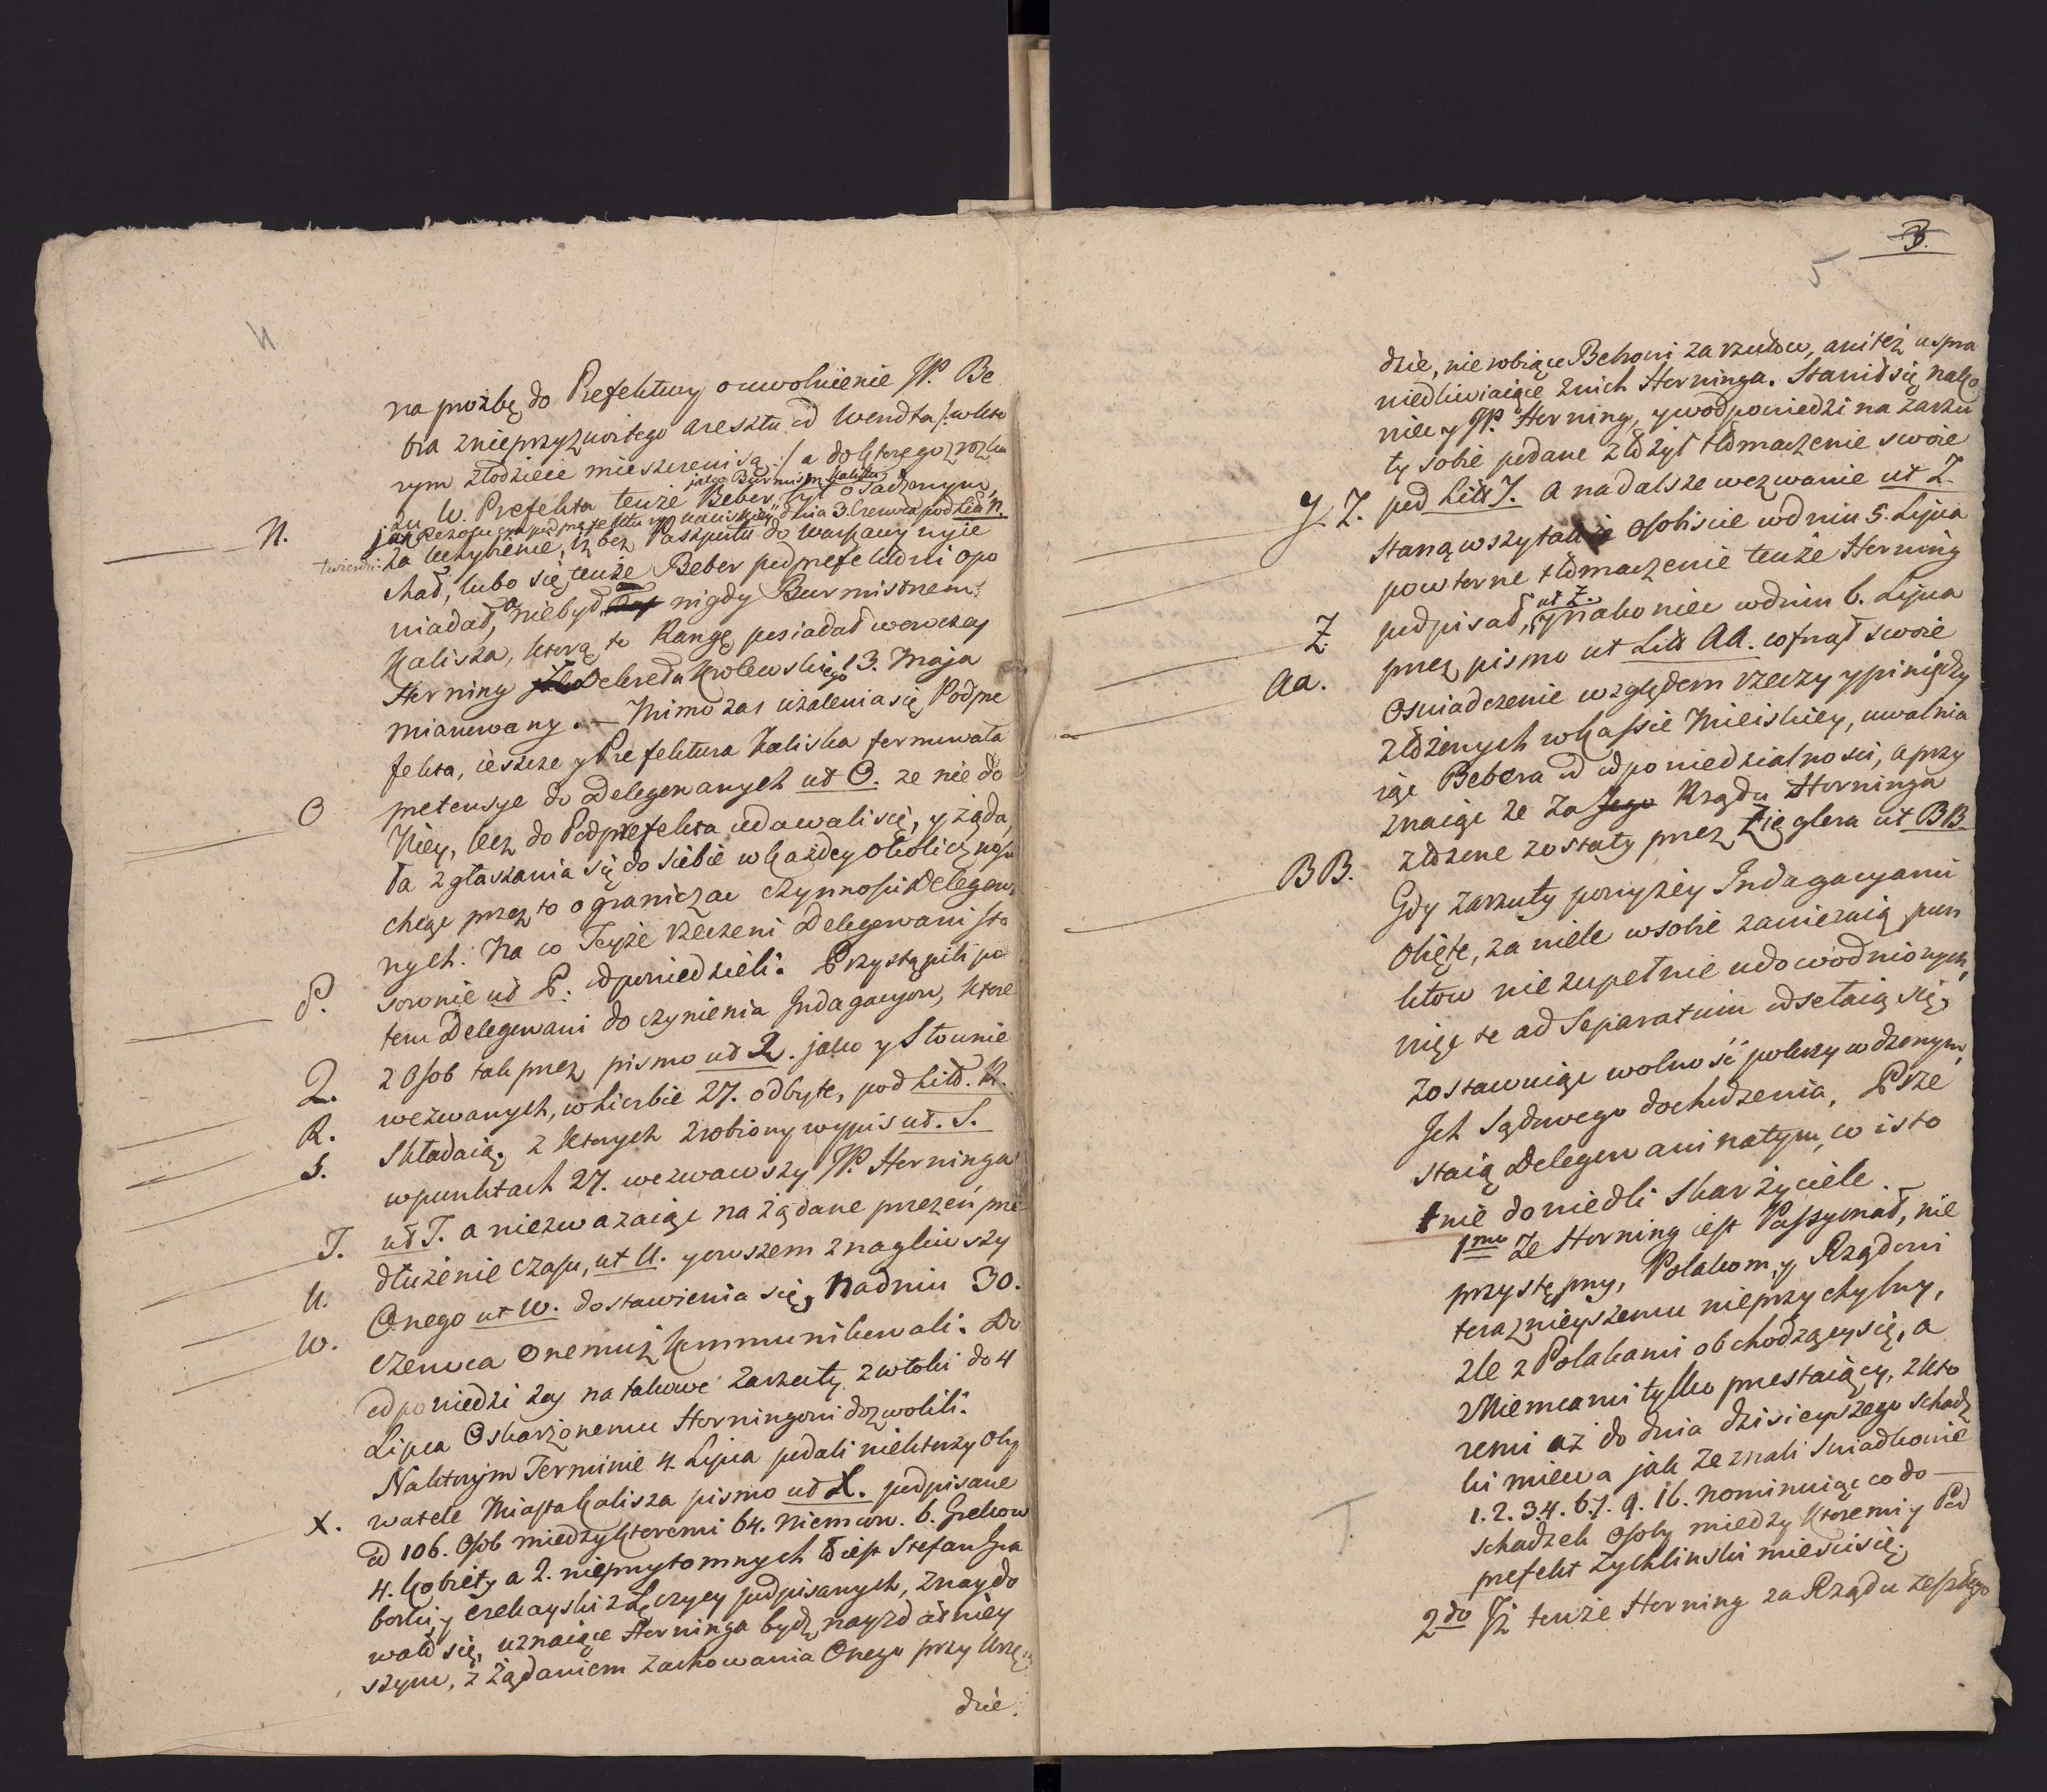 4
na proźbę do Prefektury o uwolnienie JP. Be
bra z nieprzyzwoitego aresztu od Wendta /: w któ
rym złodzieie mieszczeni są :/ a do którego z rozka
zu W. Prefekta tenże Beber był osadzonym,
jako Burmistrz Kaliski
N.
dnia 3. Czerwca pod Lit. N.
twierdzi:
za uchybienie, iż bez Paszportu do Warszawy wyie
chał, lubo się tenże Beber podprefektowi opo
wiadał, a niebył nigdy Burmistrzem
Kalisza, którą to Rangę posiadał wowczas
Herning Dekretem Krolewskiego 13. Maja
mianowany. — Mimo zas użalenia się Podpre
fekta, ieszcze y Prefektura Kaliska formowała
O
pretensye do Delegowanych ut O. że nie do
Niey, lecz do Podprefekta udawali się, y żąda
ła zgłaszania się do siebie w każdey okoliczności
chcąc przez to ograniczać czynności Delegowa
nych: Na co Teyże rzeczeni Delegowani sto
P.
sownie ut P. odpowiedzieli. Przystąpili po
tem Delegowani do czynienia Indagacyow, które
Q.
z Osob tak przez pismo ut Q. jako y słownie
R.
wezwanych, w liczbie 27. odbyte, pod Litt. R.
S.
Składaią, z których zrobiony wypis ut. S.
w punktach 27. wezwawszy JP. Herninga
T.
ut T. a niezważaiąc na żądane przezeń prze
U.
dłużenie czasu, ut U. y owszem znagliwszy
W.
Onego ut W. do stawienia się, Nadniu 30.
Czerwca Onemuż kommunikowali. Do
odpowiedzi zaś na takowe zarzuty zwłoki do 4
Lipca Oskarżonemu Herningowi dozwolili.
Na którym Terminie 4. Lipca podali niektorzy Oby
X.
watele Miasta Kalisza pismo ut X. podpisane
od 106. Osob między któremi 64. Niemcow. 6. Grekow
4. Kobiety a 2. nieprzytomnych to iest Stefan Gra
borski y Czekayski z Łęczycy podpisanych, znaydo
wało się, uznaiące Herninga bydź nayzdatniey
szym, z żądaniem zachowania Onego przy Urzę
dzie.
3.
5
dzie, nie robiące Bebrowi zarzutow, anitéż uspra
wiedliwiaiące z nich Herninga. Stawił się nako
niec y JP. Herning, y w odpowiedzi na zarzu
ty sobie podane złożył tłomaczenie swoie
Y. Z.
pod Litt Y. a na dalsze wezwanie ut Z.
Stanąwszy także osobiscie w dniu 5. Lipca
powtorne tłomaczenie tenże Herning
Z.
podpisał, ut Z. y nakoniec w dniu 6. Lipca
Aa.
przez pismo ut Litt AA. cofnął swoie
Oswiadczenie względem rzeczy y pieniędzy
złożonych w Kassie Mieiskiey, uwalnia
iąc Bebera od odpowiedzialnosci, a przy
znaiąc że za Jego Rządu Herninga
BB.
złożone zostały przez Zięglera ut BB
Gdy zarzuty powyżey Indagacyami
obięte, za wiele w sobie zawieraią pun
ktow niezupełnie udowodnionych,
więc te ad Separatum odsełaią się,
zostawuiąc wolność pokrzywdzonym,
Ich Sądowego dochodzenia, Prze
staią Delegowani na tym, co isto
tnie dowiedli Skarżyciele.
1mo Że Herning iest Passyonat, nie
przystępny, Polakom y Rządowi
teraznieyszemu nieprzychylny,
źle z Polakami obchodzący się, a
z Niemcami tylko przestaiący, z któ
remi aż do dnia dzisieyszego schadz
ki miewa jak zeznali Swiadkowie
1. 2. 3. 4. 6. 7. 9. 16. nominuiąc co do
schadzek osoby między któremi y Pod
prefekt Zychlinski miesci się.
2do Iż tenże Herning za Rządu zeszłego